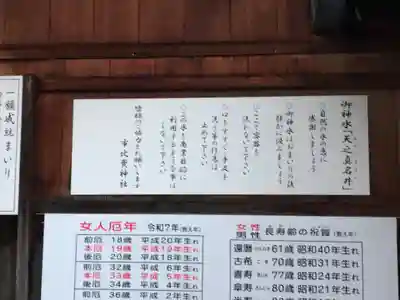 御神水「天之真名井」
○自然の水の恵に
感謝しましょう
○御神水はお詣りの後
静かに汲みましょう
○ここで容器を
洗わないで下さい
○口をすすぐ・手足を
洗う等の行為は
止めて下さい
○この水を商業目的に
利用する事
しないで下さい
皆様のご協力お願いします
市比賣神社
一願成就まいり
女人厄年 令和7年(数え年)
前厄 18歳 平成20年生れ
本厄 19歳 平成19年生れ
後厄 20歳 平成18年生れ
前厄 32歳 平成6年生れ
本厄 33歳 平成5年生れ
後厄 34歳 平成4年生れ
前厄 36歳 平成2年生れ
女性
男性 長寿齢の祝賀(数え年)
還暦 61歳 昭和40年生れ
古希 70歳 昭和31年生れ
喜寿 77歳 昭和24年生れ
傘寿 80歳 昭和21年生れ